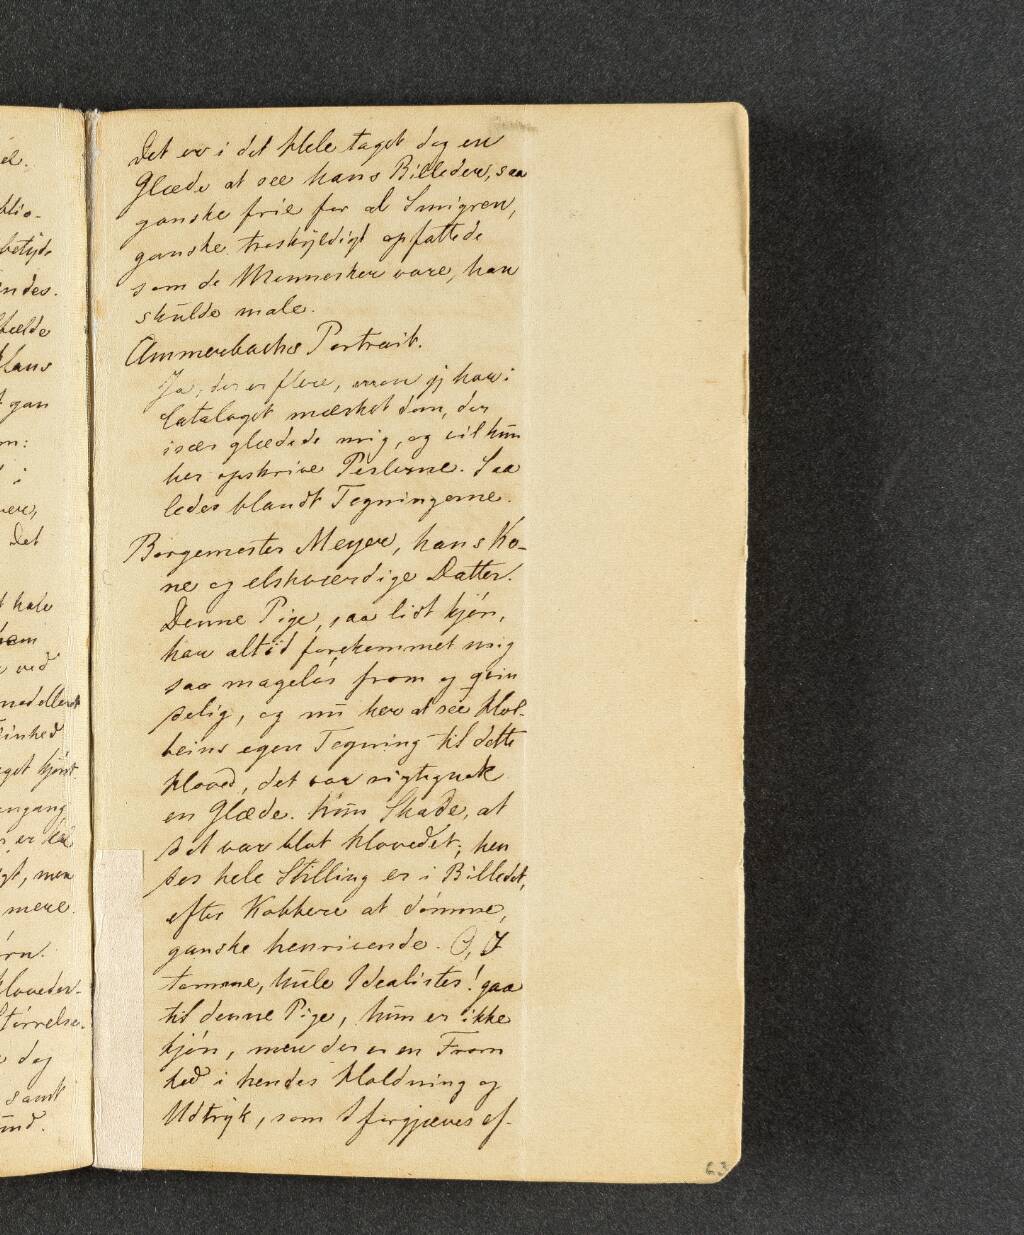 el.
blio-
betyde
endes.
fælde
Hans
gan
m:
vere,
Det
hele
hem
ved
modelleret
inhed
get kjønt
engang
er
gt, men
mere.
ørn.
Hoveder-
Størrelse.
dog
samt
ind.
Det er i det Hele taget dog en
Glæde at see hans Billeder, saa
ganske frie for al Smigren,
ganske troskyldigt opfattede
som de Mennesker vare, han
skulde male.
Ammerbachs Portrait.
Ja, der er flere, men jeg har i
Cataloget mærket dem, der
især glædede mig, og vil kun
her opskrive Perlerne. Saa
ledes blandt Tegningerne.
Borgemester Meyer, hans Ko-
ne og elskværdige Datter.
Denne Pige, saa lidt kjøn,
har altid forekommet mig
saa mageløs from og qvin
delig, og nu her at see Hol-
beins egen Tegning til dette
Hoved, det var rigtignok
en Glæde. Kun Skade, at
det var blot Hovedet; hen
des hele Stilling er i Billedet,
efter Kobbere at dømme,
ganske henrivende. O, I
tomme, hule Idealister! gaa
til denne Pige, hun er ikke
kjøn, men der er en From
hed i hendes Holdning og
Udtryk, som I forgjæves ef-
63